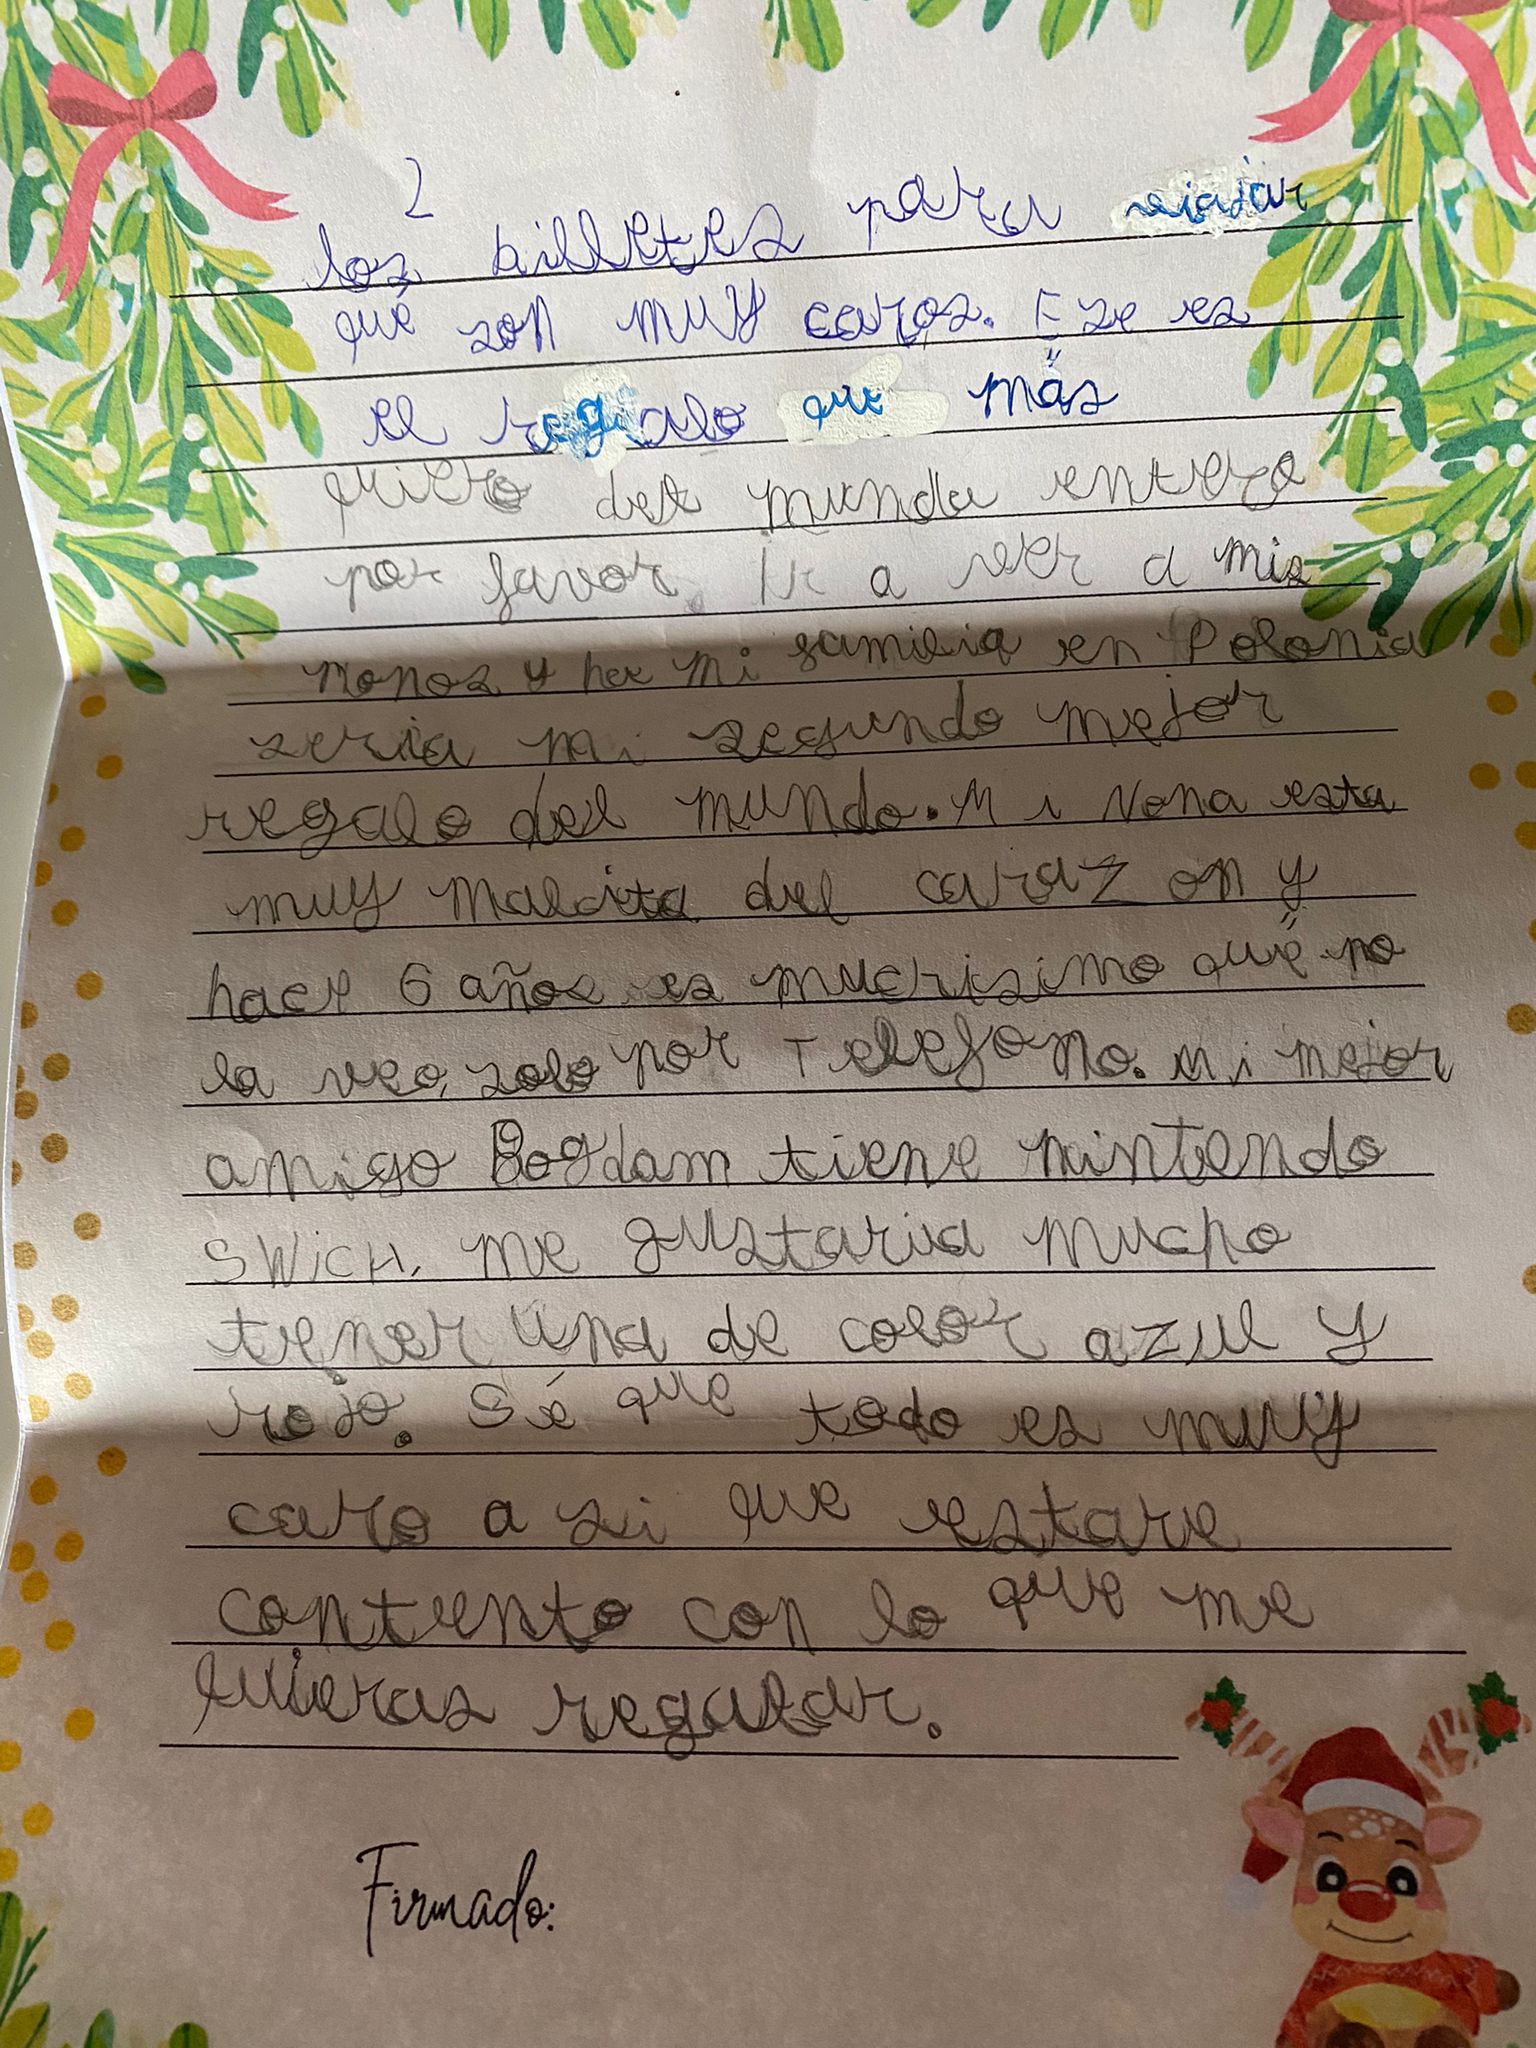 2
los billetes para viajar
qué son muy caros. Ese es
el regalo que más
quiero del mundo entero
por favor. Ir a ver a mis
nonos y her mi familia en Polonia
seria mi segundo mejor
regalo del mundo. Mi Nona esta
muy malcita del caraz on y
hace 6 años es muchisimo qué no
la veo, solo por Telefono. Mi mejor
amigo Bogdam tiene nintendo
SWicH. me gustaria mucho
tener una de color azul y
rojo. Sé que todo es muy
caro a si que estare
contento con lo que me
quieras regalar.
Firmado: